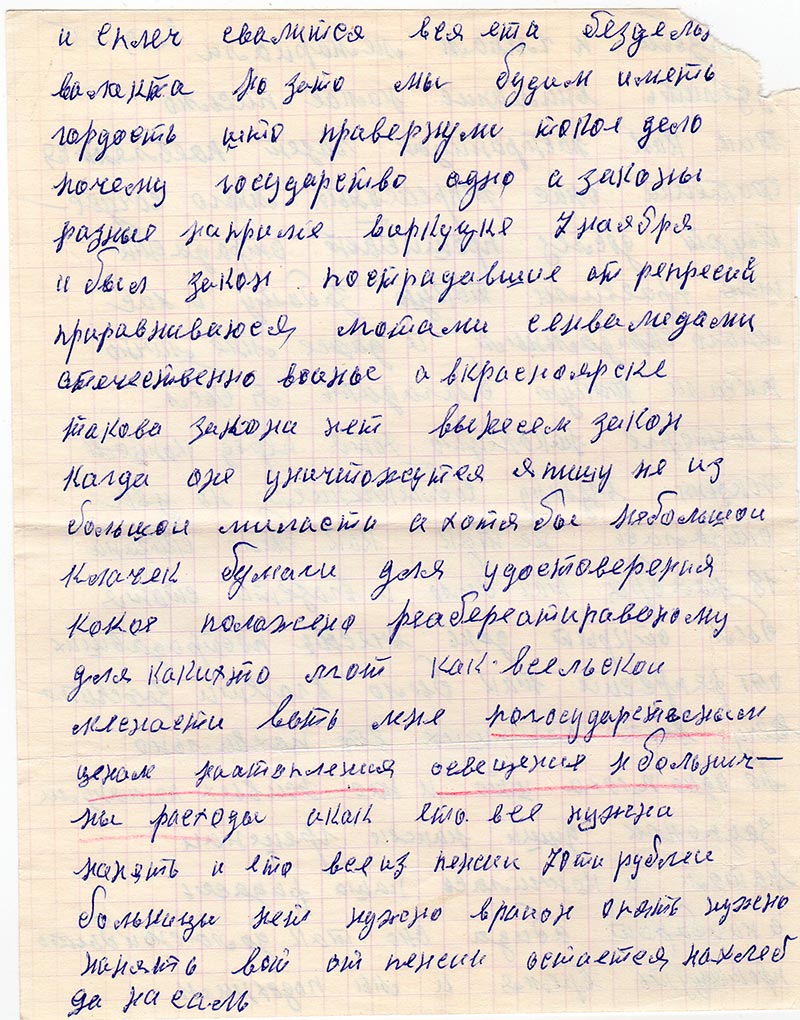 и сплеч свалится вся ета бездель
валакта Но зато мы будим иметь
гордость што правернули токоя дело
почему государство одно а законы
разные наприме варкушке 7 наября
и был закон. пострадавшие от репресий
приравниваюся льготами сенвалидами
отечественно воины а вкрасноярске
такова закона нет вынесем закон
Кагда оне уничтожутся я пишу не из
большои миласти а хотя бы небольшои
клачек бумаги для удостоверения
какое полажено реабереатираваному
для какихто лгот как. всельскои
меснасти воть мне погосударственым
ценам наатопления освещения и больнич—
ны расходы икак ето все нужна
нанять и ето все из пенсии 70ти рублеи
больницы нет нужно враион опять нужно
нанять вот от пенсии остается нахлеб
да на саль